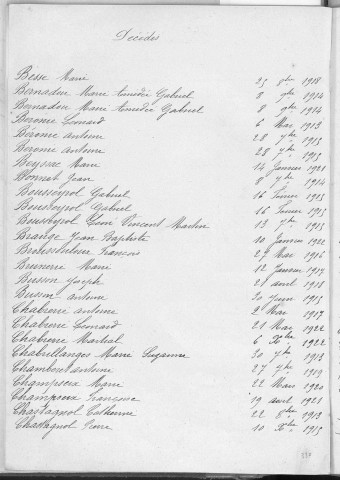 Décédés
Besse Marie 25 8bre 1918
Bernadou Marie Amédée Gabriel 8 9bre 1914
Bernadou Marie Amédée Gabriel 8 9bre 1914
Bérome Léonard 6 Mai 1913
Bérome Antoine 28 7bre 1915
Bérome Antoine 28 7bre 1915
Beyssac Marie 14 Janvier 1921
Bonnet Jean 8 7bre 1914
Bousseyrol Gabriel 16 Février 1915
Bousseyrol Gabriel 16 Février 1915
Bousseyrol Vincent Martin 13 7bre 1915
Brange Jean Baptiste 10 Janvier 1922
François 27 Mai 1916
Brunerie Marie 12 Janvier 1914
Buisson Joseph 21 avril 1918
Buisson Antoine 30 Juin 1915
Chabrerie Antoine 2 Mai 1917
Chabrerie Léonard 21 Mai 1922
Chabrerie Martial 6 Xbre 1922
Chabrellanges Marie Suzanne 30 7bre 1913
Chambort Antoine 27 7bre 1919
Champseix Marie 22 Mars 1920
Champseix Françoise 19 avril 1921
Chastagnol Catherine 22 8bre 1913
Chastagnol Pierre 10 Xbre 1915